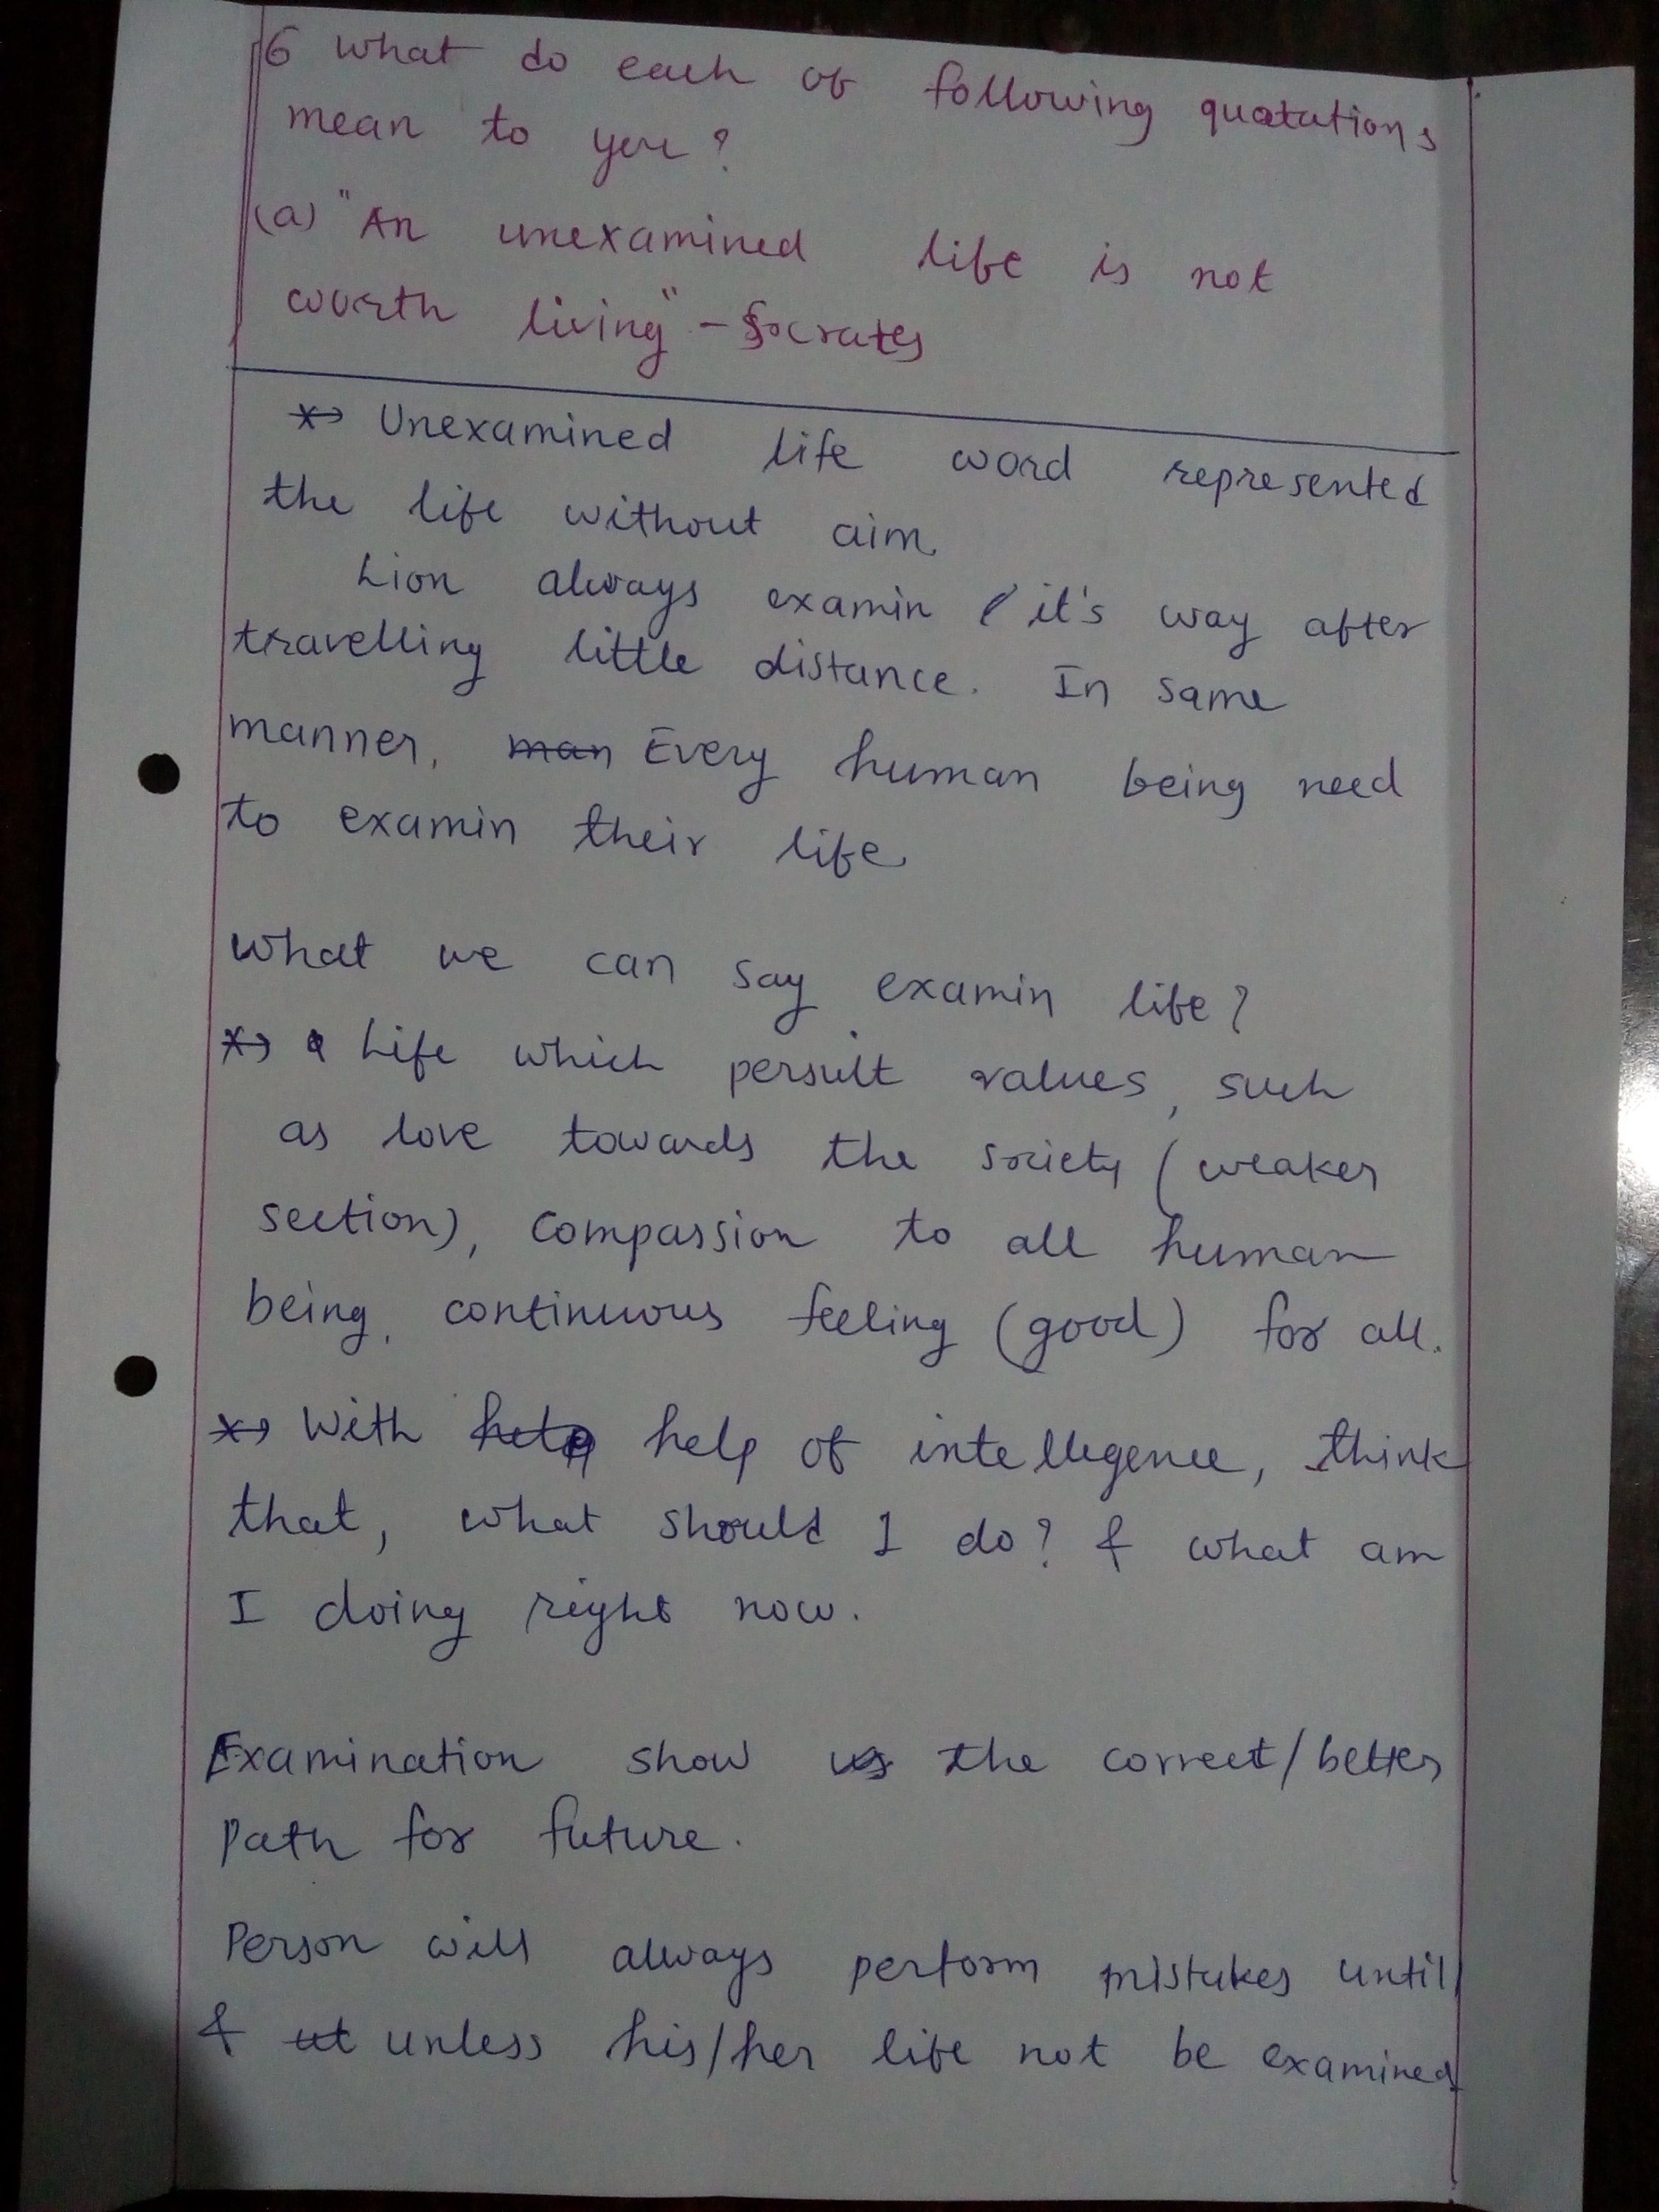 6 What do each of following quotations
mean to you?
(a) "An unexamined life is not
worth living" - Socrates
Unexamined life word represented
the life without aim.
Lion always examin it's way after
travelling little distance. In same
manner, man Every human being need
to examin their life.
What we can say examin life?
Life which persuit values, such
as love towards the society (weaker
section), compassion to all human
being, continuous feeling (good) for all.
With help help of intellegence, think
that, what should I do? & what am
I doing right now.
Examination show us the correct/better
path for future.
Person will always perform mistakes until
& ut unless his/her life not be examined